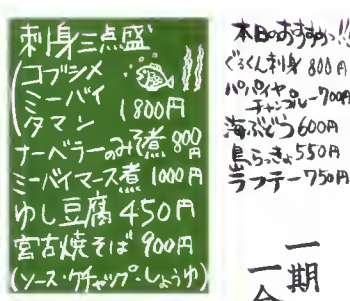 刺身三点盛
(コブシメ
ミーバイ
タマン
1800円
ナーベラーのみそ煮 800円
ミーバイマース煮 1000円
ゆし豆腐 450円
宮古焼そば 900円
(ソース・ケチャップ・しょうゆ)
本日のおすすめっ!!
ぐるくん刺身 800円
パパイヤ
チャンプルー 700円
海ぶどう 600円
島らっきょ 550円
ラフテー 750円
一期
一会